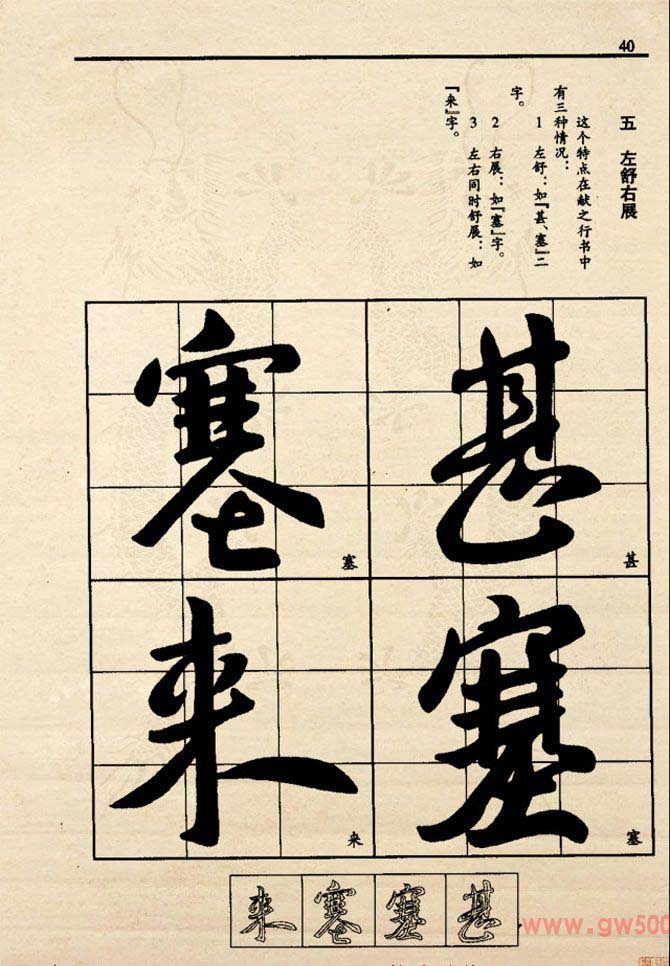 40
五 左舒右展
这个特点在献之行书中
有三种情况：
1 左舒：如『甚、塞』二
字。
2 右展：如『塞』字。
3 左右同时舒展：如
『来』字。
甚
甚
塞
塞
塞
塞
来
来
甚
塞
塞
来
www.gw500